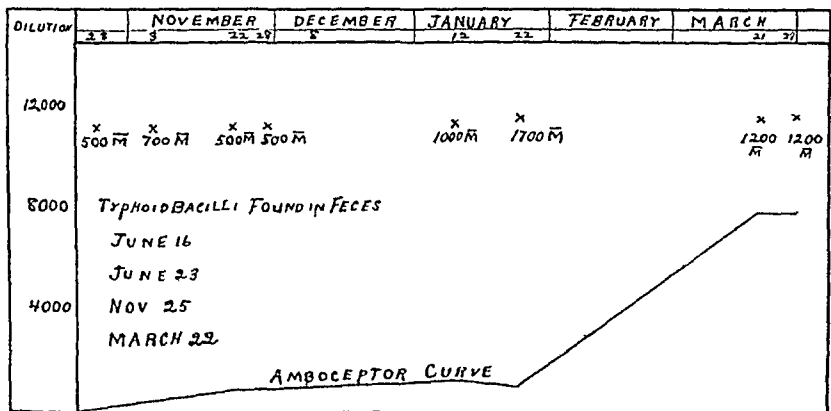 DILUTION NOVEMBER DECEMBER JANUARY FEBRUARY MARCH
28 8 22 28 5 12 22 21 27
12,000
x x x x x x x x
500 M̅ 700 M̅ 500 M̅ 500 M̅ 1000 M̅ 1700 M̅ 1200 1200
M̅ M̅
8000 TYPHOID BACILLI FOUND IN FECES
JUNE 16
JUNE 23
4000 NOV 25
MARCH 22
AMBOCEPTOR CURVE